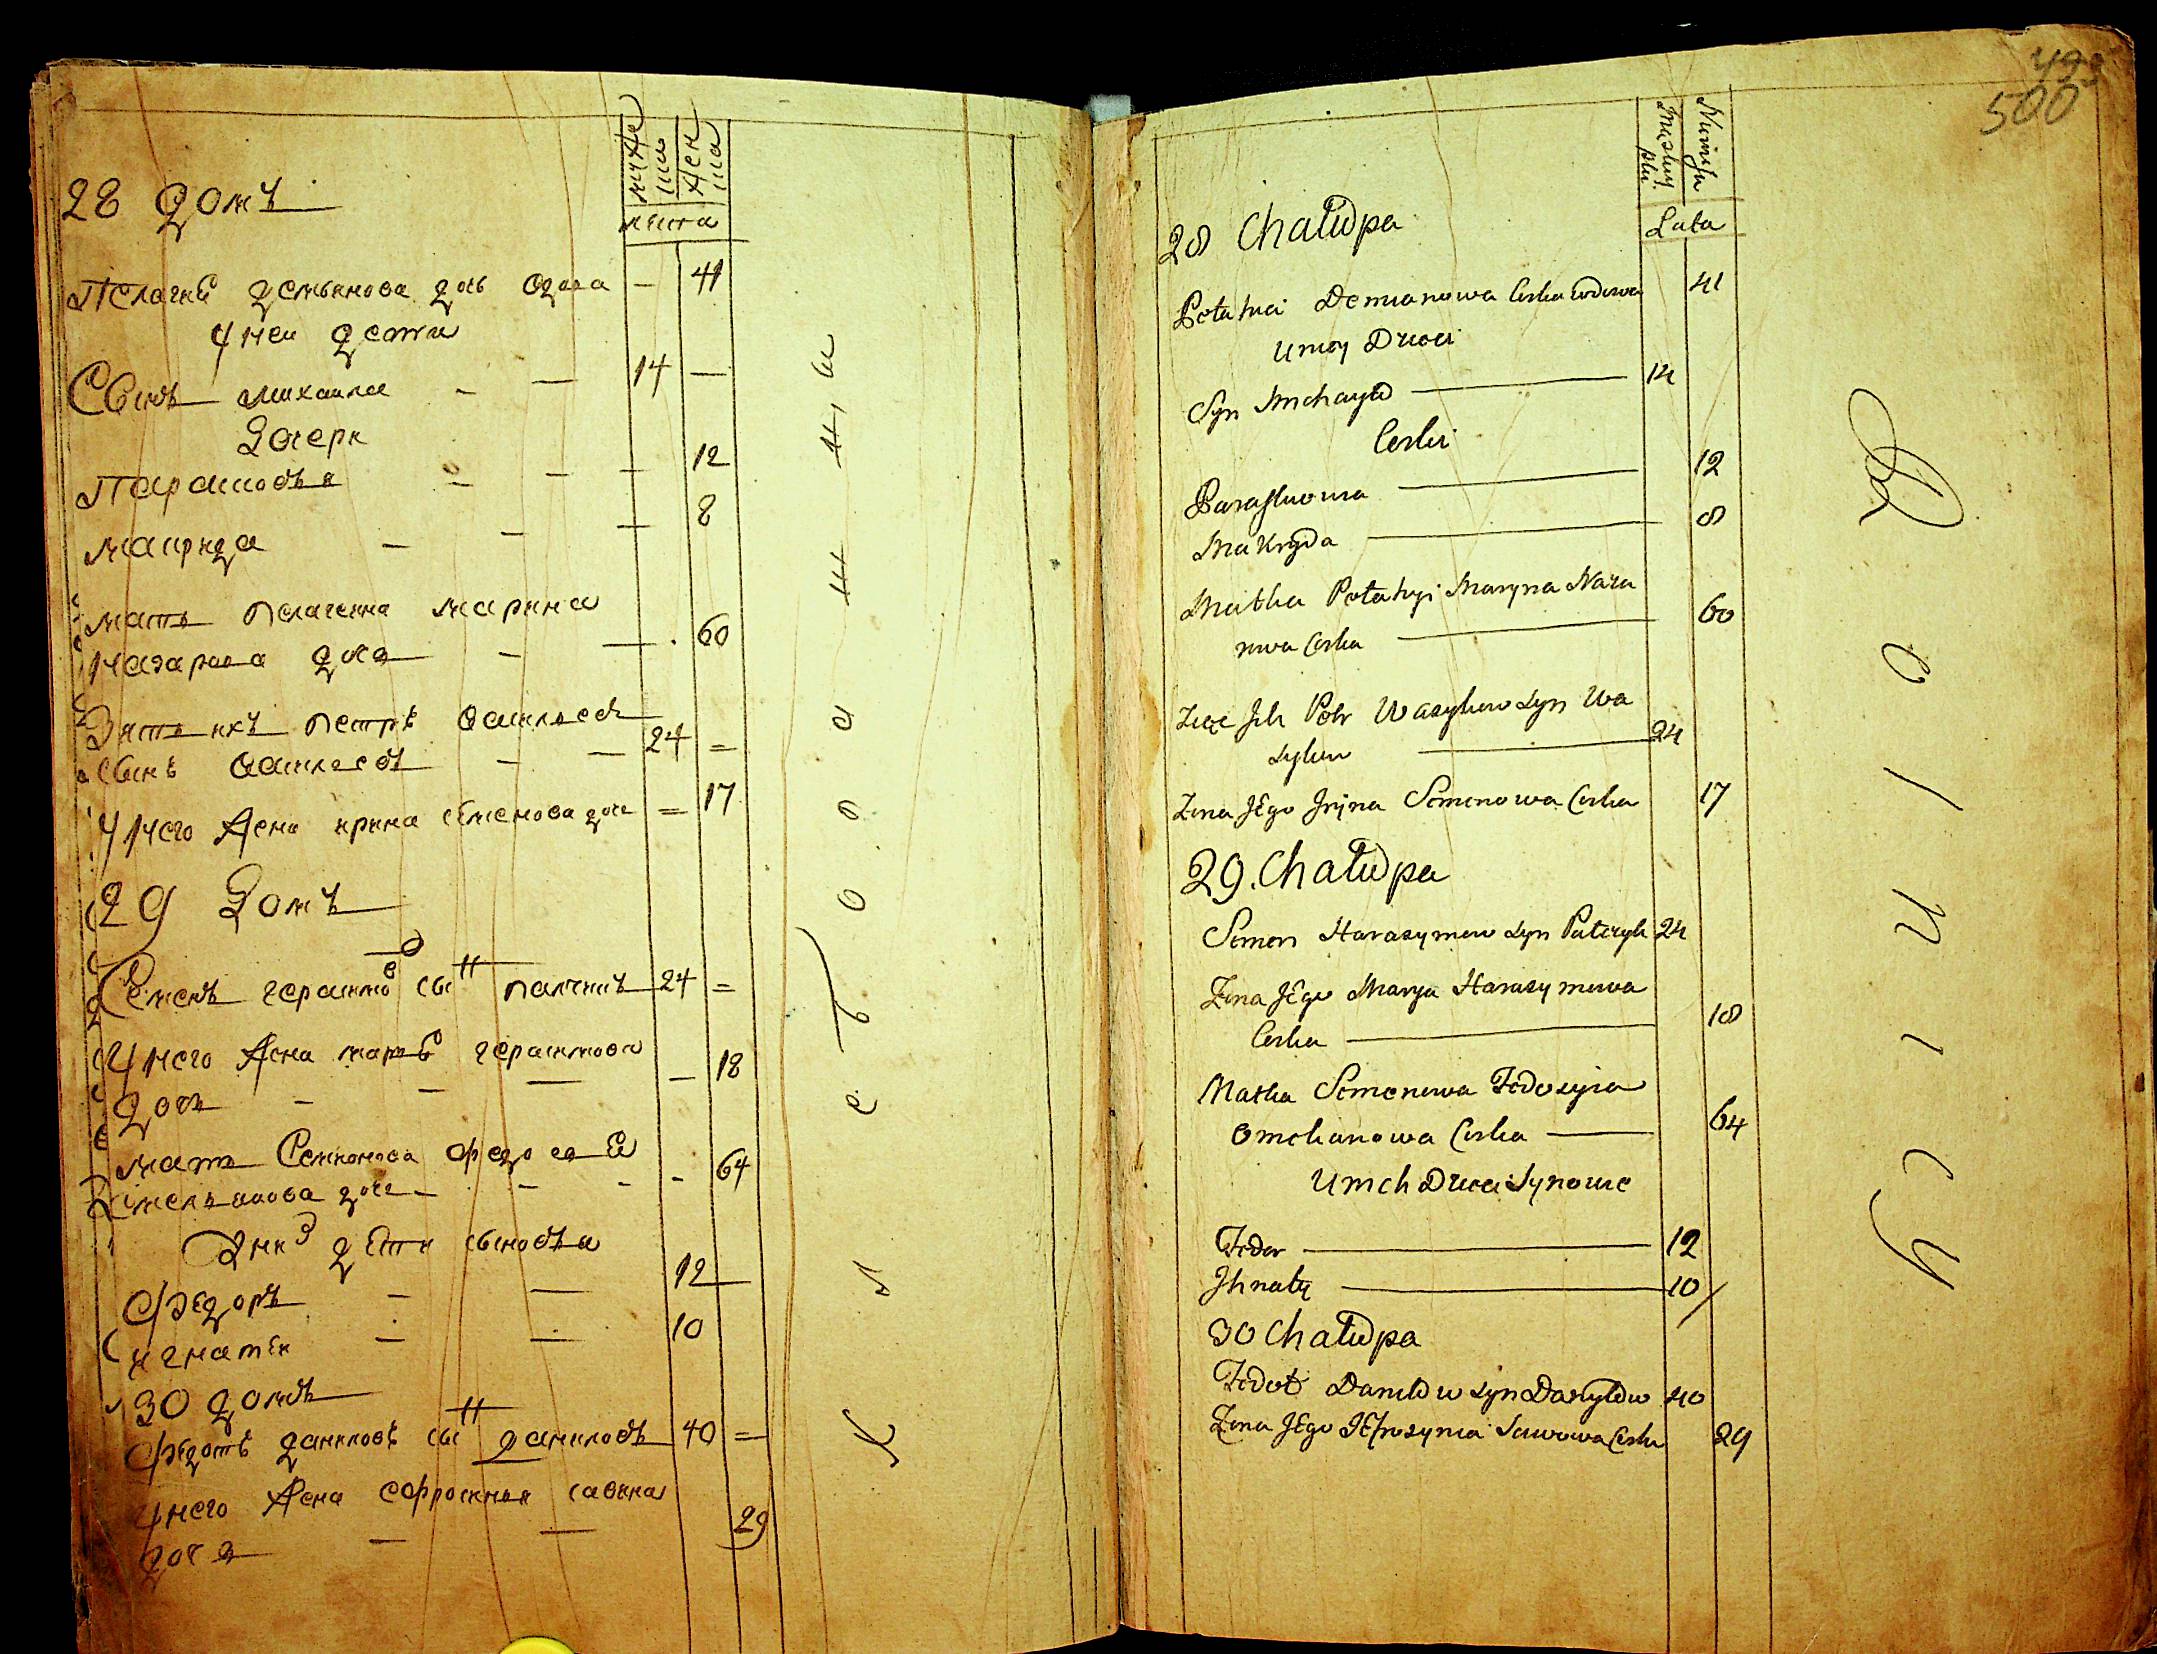 мужеска
женска
лѣта
28 домъ
Пелагия демьянова дочь вдова — 41
у неи дети
Сынъ михаила — 14 —
Дочери
Парасковья — 12
макрида — 8
мать пелагеина марина
назарова дочь — 60
Зять ихъ петръ васильевъ
сынъ васильевъ — 24 =
у него жена ирина семенова дочь = 17
29 Домъ
Семенъ герасимовъ сынъ палчикъ 24 =
у него жена марья герасимова
дочь — 18
мать Семионова федосея
Емельянова дочь — 64
у них дети сыновья
Федоръ — 12
игнатеи — 10
30 домъ
Федотъ даниловъ сынъ даниловъ 40 =
у него жена евфросинья савина
дочь — 29
крестьяне
499
500
Męskiey płci
Lata
28 Chałupa
Pełahia Demianowa Corka wdowa 41
U niey Dzieci
Syn Michayło 14
Corki
Paraskiewia 12
Makryda 8
Matka Pełahyi Maryna Naza
rowa Corka 60
Zięć Ich Piotr Wasylow Syn Wa
sylew 24
Zona Jego Jryna Semenowa Corka 17
29. Chałupa
Semen Harasymow Syn Palczyk 24
Zona Jego Marya Harasymowa
Corka 18
Matka Semenowa Fedosyia
Omelianowa Corka 64
U nich Dzieci Synowie
Fedor 12
Jhnaty 10
30 Chałupa
Fedot Daniłow Syn Daniłow 40
Zona Jego Jefrosynia Sawowa Corka 29